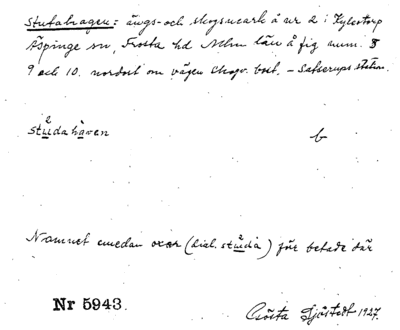 Stutahagen: ängs- och skogsmark å nr 2 i Kylestorp
Äspinge sn, Frosta hd Mlm län å fig num. 8
9 och 10. nordost om vägen Skogv. bost. – Satserups station.
stu²dahàven b
Namnet emedan oxar (dial. stu²da) före betade där
Nr 5943.
Gösta Sjöstedt 1927.